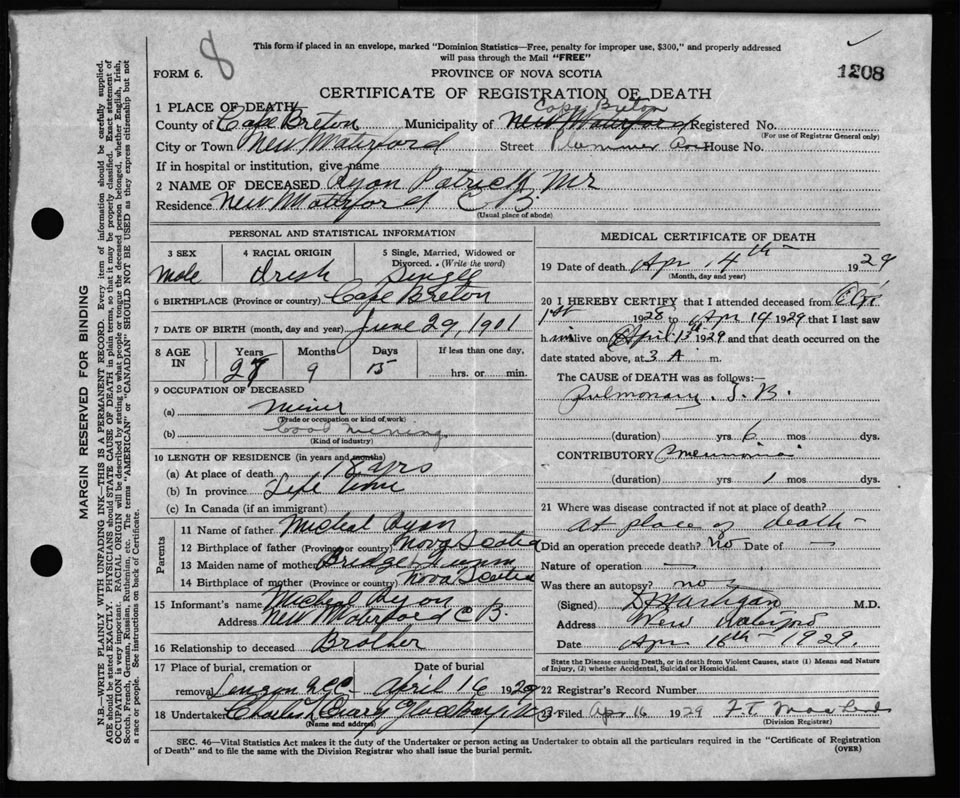 8
This form if placed in an envelope, marked "Dominion Statistics—Free, penalty for improper use, $300," and properly addressed
will pass through the Mail "FREE"
FORM 6.
PROVINCE OF NOVA SCOTIA
1208
CERTIFICATE OF REGISTRATION OF DEATH
1 PLACE OF DEATH
County of Cape Breton Municipality of Cape Breton New Waterford Registered No.
(For use of Registrar General only)
City or Town New Waterford Street Plummer House No.
If in hospital or institution, give name
2 NAME OF DECEASED Ryan Patrick Mr
Residence New Waterford C B.
(Usual place of abode)
PERSONAL AND STATISTICAL INFORMATION
3 SEX 4 RACIAL ORIGIN 5 Single, Married, Widowed or Divorced. (Write the word)
Male Irish Single
6 BIRTHPLACE (Province or country) Cape Breton
7 DATE OF BIRTH (month, day and year) June 29, 1901
8 AGE IN Years Months Days If less than one day,
9 15 hrs. or min.
9 OCCUPATION OF DECEASED
(a) Miner
(Trade or occupation or kind of work)
(b) Coal mining
(Kind of industry)
10 LENGTH OF RESIDENCE (in years and months)
(a) At place of death 18 yrs
(b) In province Life time
(c) In Canada (if an immigrant)
Parents
11 Name of father Micheal Ryan
12 Birthplace of father (Province or country) Nova Scotia
13 Maiden name of mother
14 Birthplace of mother (Province or country) Nova Scotia
15 Informant's name Micheal Ryan
Address New Waterford C B.
16 Relationship to deceased Brother
17 Place of burial, cremation or Date of burial
removal April 16 1929
18 Undertaker
(Name and address)
MEDICAL CERTIFICATE OF DEATH
19 Date of death Apr 14th 1929
(Month, day and year)
20 I HEREBY CERTIFY that I attended deceased from
1st 1928 to Apr 14 1929 that I last saw
him alive on April 13th 1929 and that death occurred on the
date stated above, at 3 A m.
The CAUSE of DEATH was as follows:—
Pulmonary T. B.
(duration) yrs 6 mos dys.
CONTRIBUTORY Pneumonia
(duration) yrs 1 mos dys.
21 Where was disease contracted if not at place of death?
At place of death —
Did an operation precede death? no Date of —
Nature of operation —
Was there an autopsy? no
(Signed) M.D.
Address New Waterford
Date Apr 16th — 1929.
State the Disease causing Death, or in death from Violent Causes, state (1) Means and Nature
of Injury, (2) whether Accidental, Suicidal or Homicidal.
22 Registrar's Record Number
23 Filed Apr 16 1929
(Division Registrar)
SEC. 46—Vital Statistics Act makes it the duty of the Undertaker or person acting as Undertaker to obtain all the particulars required in the "Certificate of Registration
of Death" and to file the same with the Division Registrar who shall issue the burial permit.
(OVER)
MARGIN RESERVED FOR BINDING
N.B.—WRITE PLAINLY WITH UNFADING INK—THIS IS A PERMANENT RECORD. Every item of information should be carefully supplied.
AGE should be stated EXACTLY. PHYSICIANS should STATE CAUSE OF DEATH in plain terms, so that it may be properly classified. Exact statement of
OCCUPATION is very important. RACIAL ORIGIN will be described by stating to what people or tongue the deceased person belonged, whether English, Irish,
Scotch, French, German, Russian, Ruthenian, etc. The terms "AMERICAN" or "CANADIAN" SHOULD NOT BE USED as they express citizenship but not
a race or people. See instructions on back of Certificate.